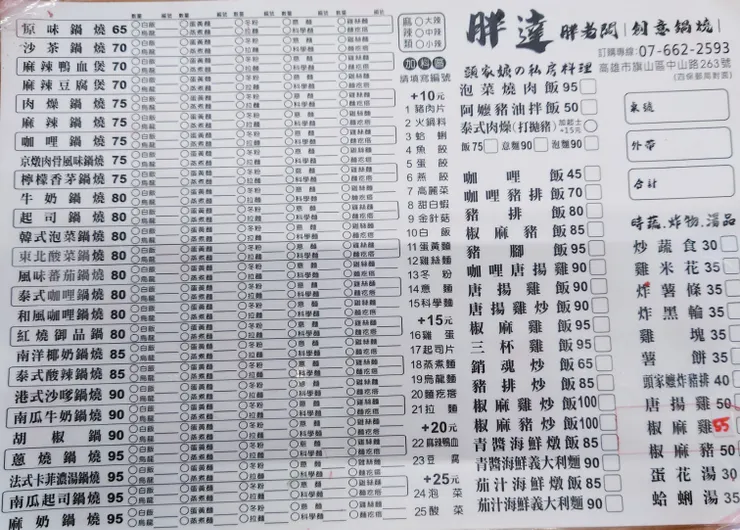 胖達 胖老闆 創意鍋燒
訂購專線:07-662-2593
高雄市旗山區中山路263號
(四保郵局對面)
原味鍋燒 65
沙茶鍋燒 70
麻辣鴨血煲 70
麻辣豆腐煲 70
肉燥鍋燒 75
麻辣鍋燒 75
咖哩鍋燒 75
京燉肉骨風味鍋燒 75
檸檬香茅鍋燒 75
牛奶鍋燒 80
起司鍋燒 80
韓式泡菜鍋燒 80
東北酸菜鍋燒 80
風味蕃茄鍋燒 80
泰式咖哩鍋燒 80
和風咖哩鍋燒 80
紅燒御品鍋 80
南洋椰奶鍋燒 85
泰式酸辣鍋燒 85
港式沙嗲鍋燒 90
南瓜牛奶鍋燒 90
胡椒鍋 90
蔥燒鍋燒 95
法式卡菲濃湯鍋燒 95
南瓜起司鍋燒 95
麻奶鍋燒 95
數量 編號 數量 編號 數量 編號 數量 編號
白飯 蛋黃麵 冬粉 意麵 雞絲麵
烏龍 蒸煮麵 拉麵 科學麵 麵疙瘩
麻辣類
大辣
中辣
小辣
加料區
請填寫編號
+10元
1 豬肉片
2 火鍋料
3 蛤蜊
4 魚餃
5 蛋餃
6 燕餃
7 高麗菜
8 甜白蝦
9 金針菇
10 白飯
11 蛋黃麵
12 雞絲麵
13 冬粉
14 意麵
15 科學麵
+15元
16 雞蛋
17 起司片
18 蒸煮麵
19 烏龍麵
20 麵疙瘩
21 拉麵
+20元
22 麻辣鴨血
23 豆腐
+25元
24 泡菜
25 酸菜
頭家娘の私房料理
泡菜燒肉飯 95
阿嬤豬油拌飯 50
泰式肉燥(打拋豬) 加起士+15元
飯75 意麵90 泡麵90
咖哩飯 45
咖哩豬排飯 70
豬排飯 80
椒麻豬飯 85
豬腳飯 95
咖哩唐揚雞 90
唐揚雞飯 90
唐揚雞炒飯 90
椒麻雞飯 95
三杯雞飯 95
銷魂炒飯 65
豬排炒飯 85
椒麻雞炒飯 100
椒麻豬炒飯 100
青醬海鮮燉飯 85
青醬海鮮義大利麵 90
茄汁海鮮燉飯 85
茄汁海鮮義大利麵 90
桌號
外帶
合計
時蔬.炸物.湯品
炒蔬食 30
雞米花 35
炸薯條 35
炸黑輪 35
雞塊 35
薯餅 35
頭家嬤炸豬排 40
唐揚雞 50
椒麻雞 55
椒麻豬 50
蛋花湯 30
蛤蜊湯 35